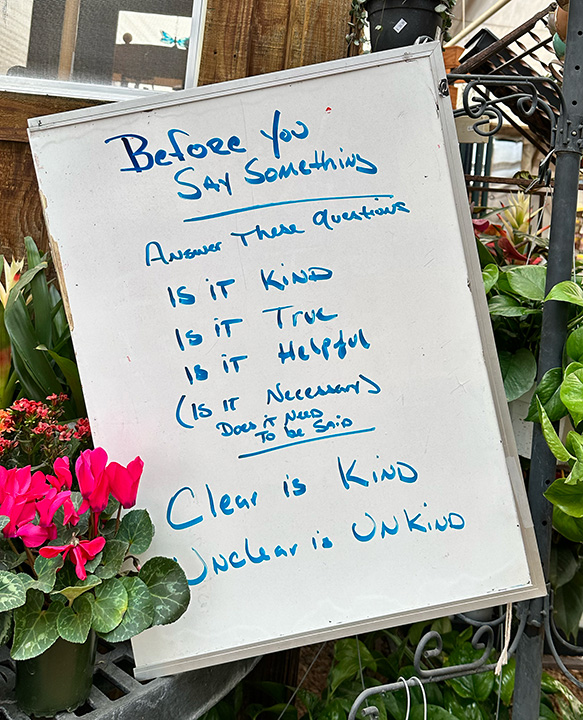 Before You
Say Something
Answer These Questions
Is it Kind
Is it True
Is it Helpful
(Is it Necessary)
Does it Need
To be Said
Clear is Kind
Unclear is Unkind